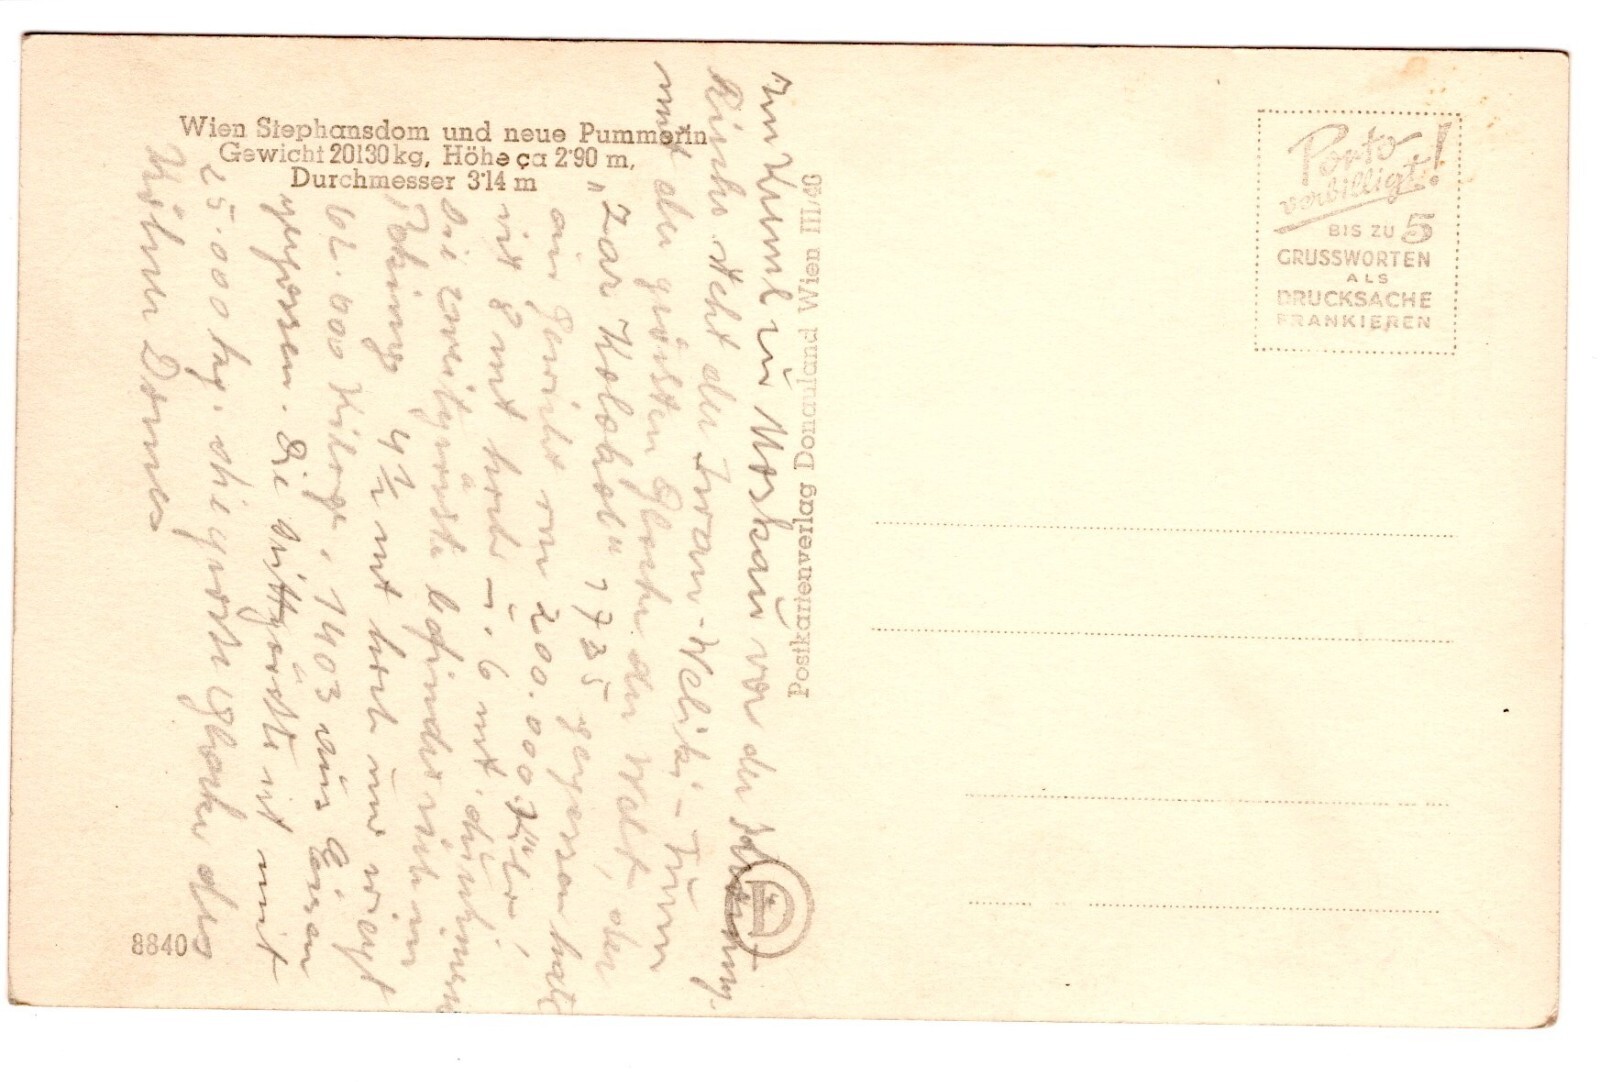 Wien Stephansdom und neue Pummerin
Gewicht 20130 kg, Höhe ca 2'90 m,
Durchmesser 3'14 m
Im Kreml zu Moskau vor der
Kirche steht der Iwan-Weliki-Turm
mit der grössten Glocke der Welt, der
"Zar Kolokol" 1735 gegossen hat
ein Gewicht von 200.000 Kilo,
ist 8 mt hoch u. 6 mt. durchm
die zweitgrösste befindet sich in
Peking 4½ mt hoch und wiegt
62.000 Kilogr. 1403 aus Eisen
gegossen. Die drittgrösste ist mit
25.000 kg. die grosse Glocke des
Kölner Domes
Postkartenverlag Donauland Wien III/40
8840
Porto
verbilligt!
BIS ZU 5
GRUSSWORTEN
ALS
DRUCKSACHE
FRANKIEREN